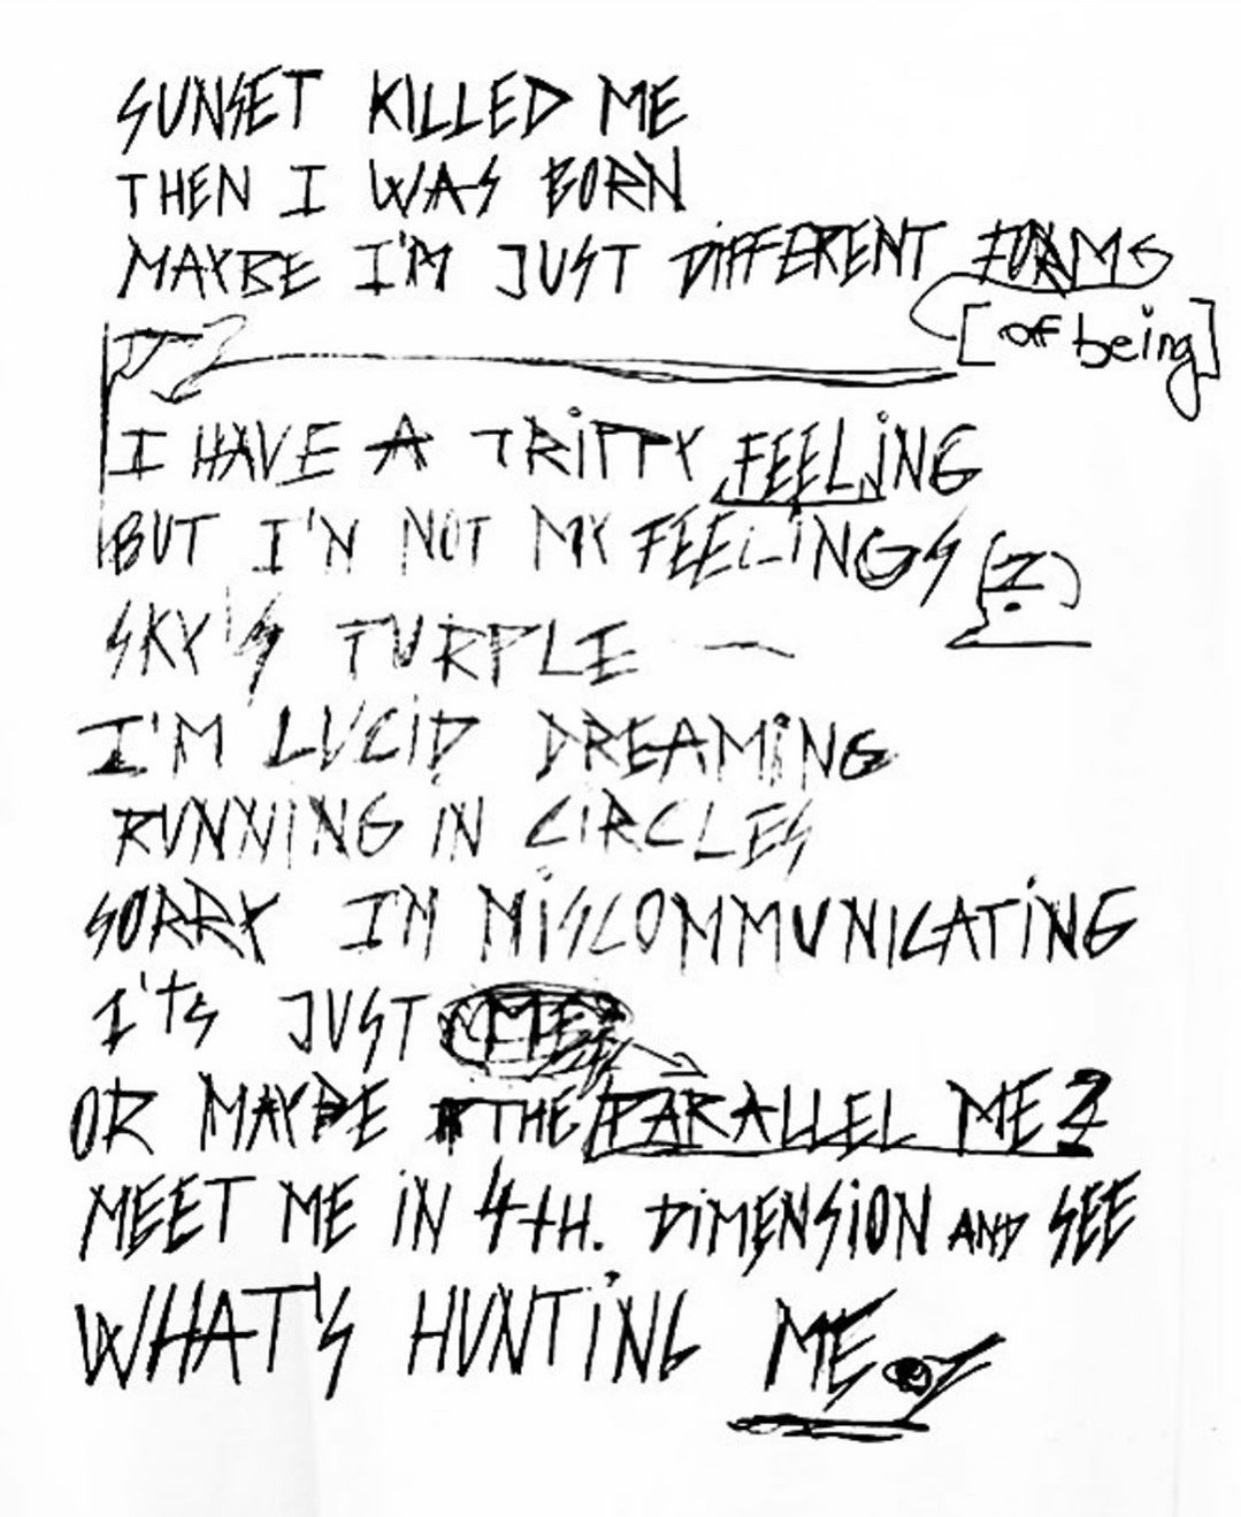 SUNSET KILLED ME
THEN I WAS BORN
MAYBE I'M JUST DIFFERENT FORMS
[of being]
I HAVE A TRIPPY FEELiNG
BUT I'M NOT MY FEELiNGS (?)
SKY'S PURPLE —
I'M LUCiD DREAMiNG
RUNNING IN CiRCLES
SORRY I'M MiSCOMMUNICATiNG
I'tS JUST ME
OR MAYBE THE PARALLEL ME?
MEET ME iN 4tH. DiMENSiON AND SEE
WHAT'S HUNTiNG ME.